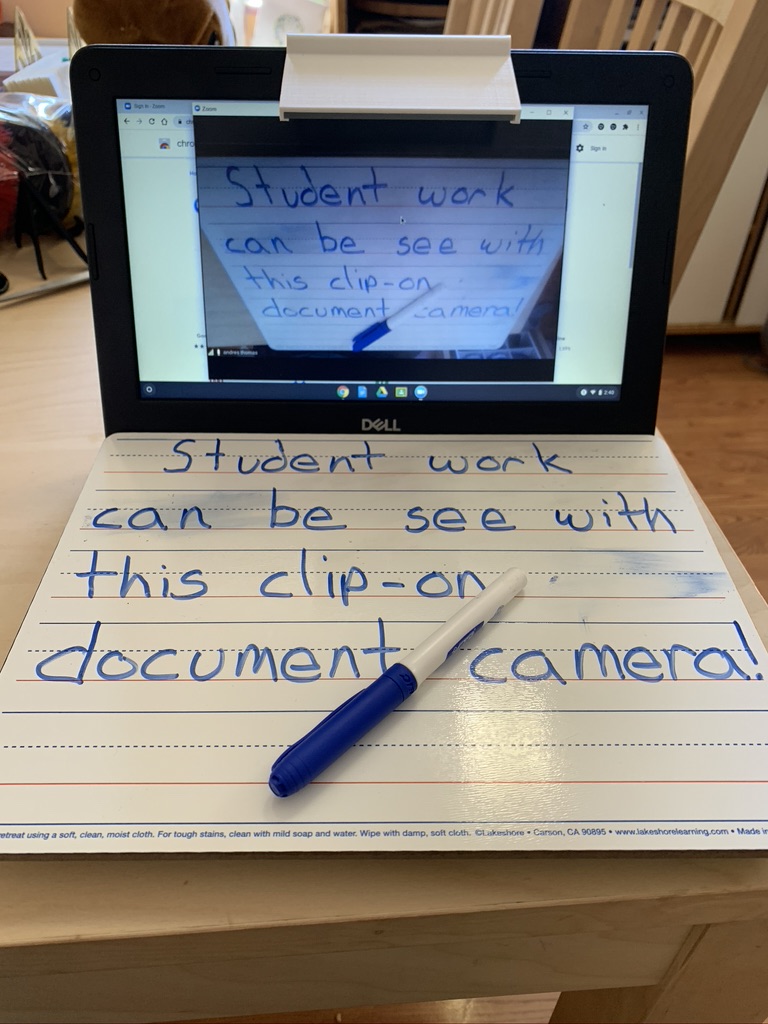 Sign In - Zoom
Zoom
chro
Sign in
Student work
can be see with
this clip-on
document camera!
andrea thomas
2:40
DELL
Student work
can be see with
this clip-on
document camera!
etreat using a soft, clean, moist cloth. For tough stains, clean with mild soap and water. Wipe with damp, soft cloth. ©Lakeshore • Carson, CA 90895 • www.lakeshorelearning.com • Made in